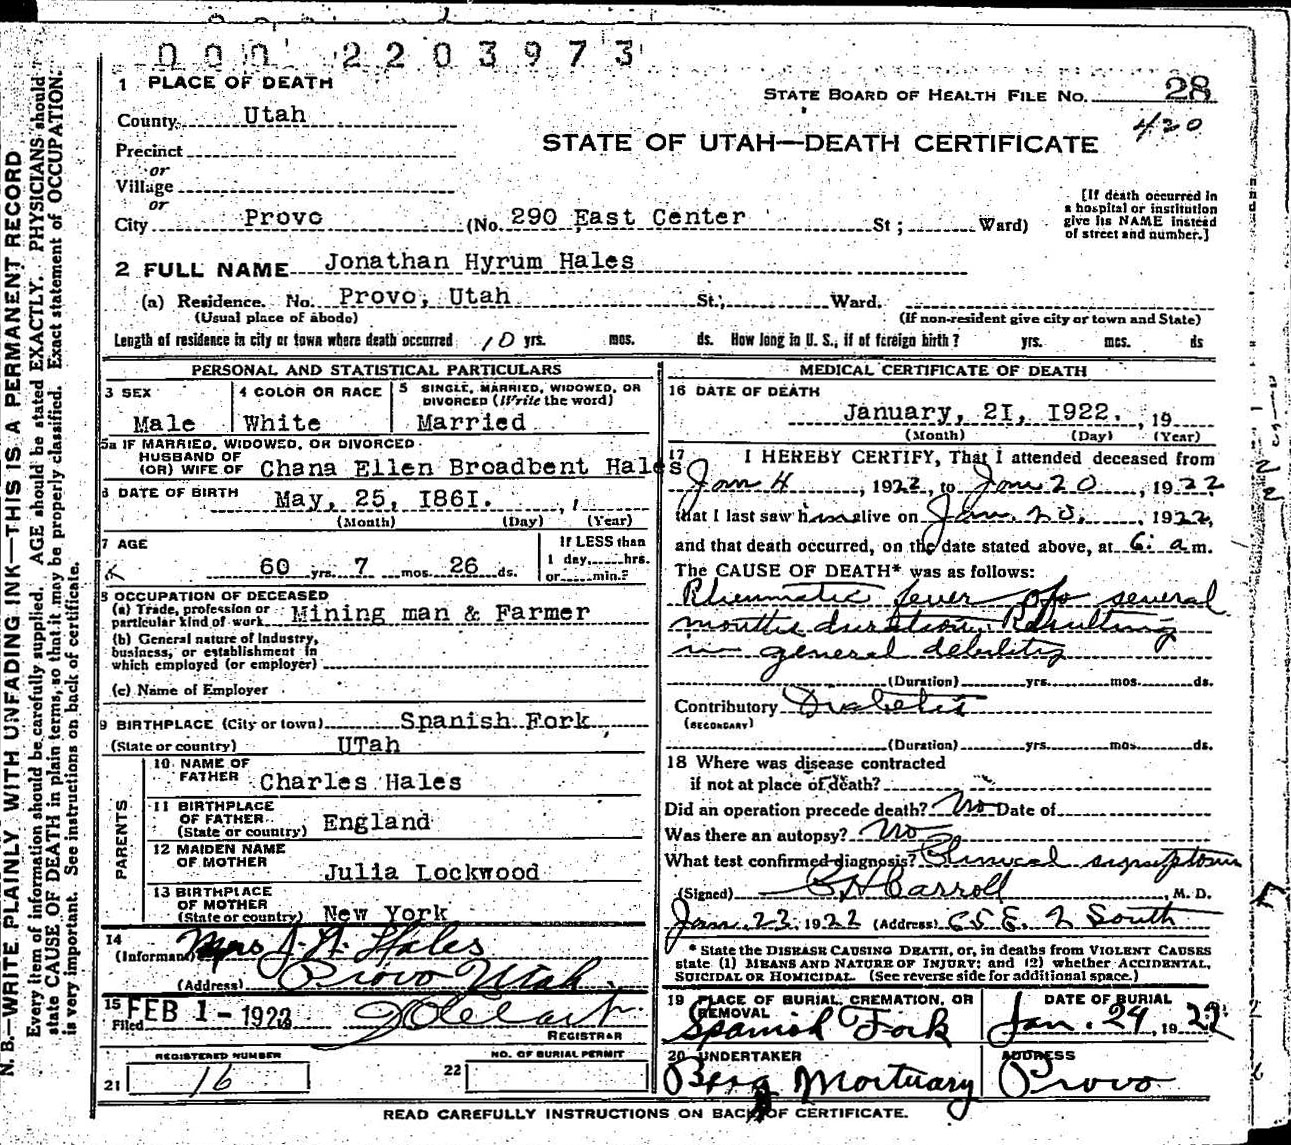 000 2203973
1 PLACE OF DEATH
STATE BOARD OF HEALTH FILE NO. 28
County Utah
420
STATE OF UTAH—DEATH CERTIFICATE
Precinct
or
Village
or
City Provo (No. 290 East Center St; Ward)
[If death occurred in
a hospital or institution
give its NAME instead
of street and number.]
2 FULL NAME Jonathan Hyrum Hales
(a) Residence. No. Provo, Utah St., Ward.
(Usual place of abode) (If non-resident give city or town and State)
Length of residence in city or town where death occurred 10 yrs. mos. ds. How long in U. S., if of foreign birth? yrs. mos. ds
PERSONAL AND STATISTICAL PARTICULARS
3 SEX
Male
4 COLOR OR RACE
White
5 SINGLE, MARRIED, WIDOWED, OR
DIVORCED (Write the word)
Married
5a IF MARRIED, WIDOWED, OR DIVORCED
HUSBAND OF
(OR) WIFE OF Chana Ellen Broadbent Hales
6 DATE OF BIRTH May, 25, I86I.
(Month) (Day) (Year)
7 AGE
60 yrs. 7 mos. 26 ds.
If LESS than
1 day, hrs.
or min.?
8 OCCUPATION OF DECEASED
(a) Trade, profession or
particular kind of work Mining man & Farmer
(b) General nature of Industry,
business, or establishment in
which employed (or employer)
(c) Name of Employer
9 BIRTHPLACE (City or town) Spanish Fork
(State or country) UTah
PARENTS
10 NAME OF
FATHER Charles Hales
11 BIRTHPLACE
OF FATHER
(State or country) England
12 MAIDEN NAME
OF MOTHER
Julia Lockwood
13 BIRTHPLACE
OF MOTHER
(State or country) New York
14
(Informant) Mrs J. H. Hales
(Address) Provo Utah
15 FEB 1 - 1922
Filed
REGISTRAR
REGISTERED NUMBER
21 16
NO. OF BURIAL PERMIT
22
MEDICAL CERTIFICATE OF DEATH
16 DATE OF DEATH
January, 2I, I922. , 19
(Month) (Day) (Year)
17 I HEREBY CERTIFY, That I attended deceased from
Jan 4, 1922, to Jan 20, 1922
that I last saw him alive on Jan. 20, 1922,
and that death occurred, on the date stated above, at 6: a m.
The CAUSE OF DEATH* was as follows:
Rheumatic fever of several
months duration. Resulting
in general debility
(Duration) yrs. mos. ds.
Contributory Diabetis
(SECONDARY)
(Duration) yrs. mos. ds.
18 Where was disease contracted
if not at place of death?
Did an operation precede death? No Date of
Was there an autopsy? No
What test confirmed diagnosis? Clinical symptoms
(Signed) Carroll M. D.
Jan. 23, 1922 (Address) 65 E. 2 South
* State the DISEASE CAUSING DEATH, or, in deaths from VIOLENT CAUSES
state (1) MEANS AND NATURE OF INJURY; and (2) whether ACCIDENTAL,
SUICIDAL OR HOMICIDAL. (See reverse side for additional space.)
19 PLACE OF BURIAL, CREMATION, OR
REMOVAL
Spanish Fork
DATE OF BURIAL
Jan. 24, 1922
20 UNDERTAKER
Berg Mortuary
ADDRESS
Provo
READ CAREFULLY INSTRUCTIONS ON BACK OF CERTIFICATE.
N. B.—WRITE PLAINLY WITH UNFADING INK—THIS IS A PERMANENT RECORD
Every item of information should be carefully supplied. AGE should be stated EXACTLY. PHYSICIANS should
state CAUSE OF DEATH in plain terms, so that it may be properly classified. Exact statement of OCCUPATION
is very important. See instructions on back of certificate.